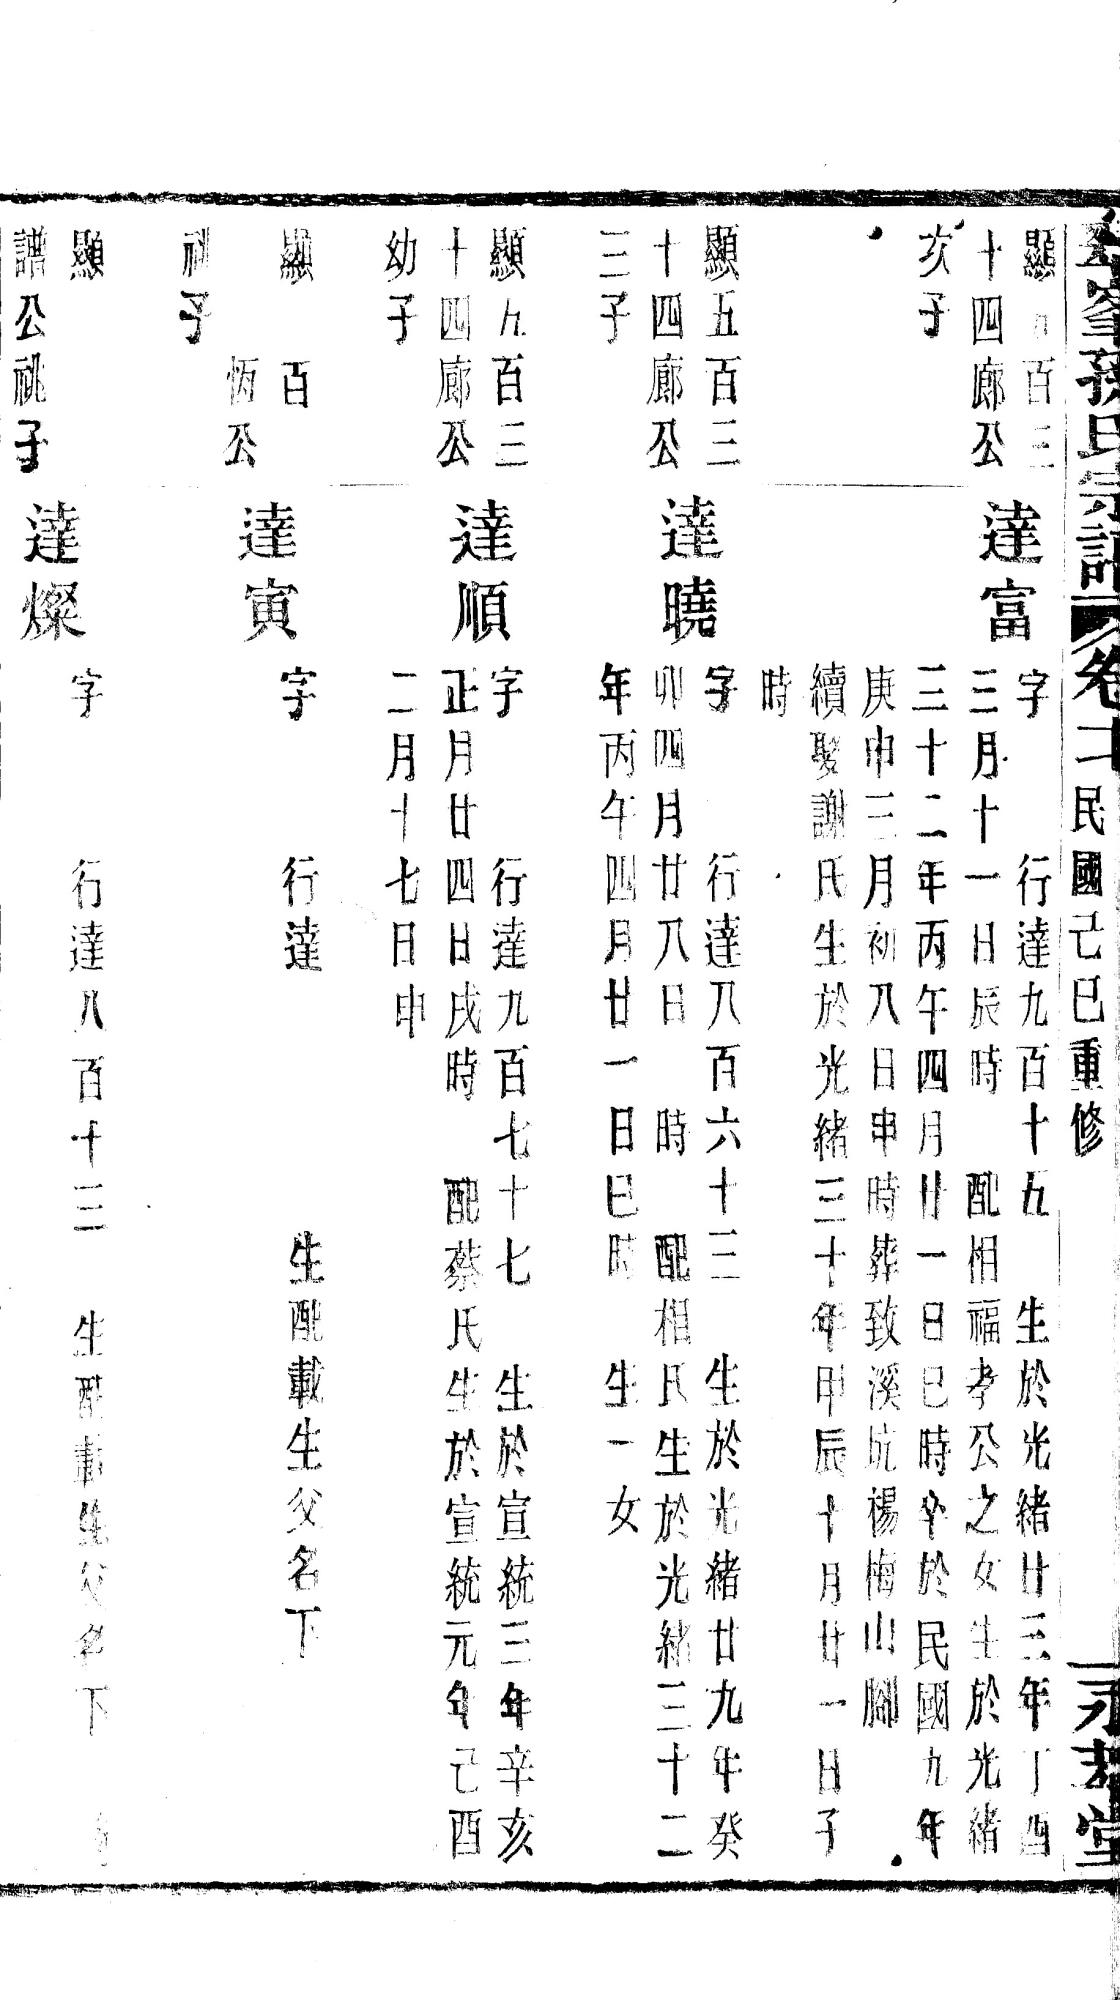 峯孫氏宗譜 卷十 民國己巳重修 永孝堂
顯五百三
十四廊公
次子
達富
字 行達九百十五 生於光緒廿三年丁酉
三月十一日辰時 配相福孝公之女生於光緒
三十二年丙午四月廿一日巳時卒於民國九年
庚申三月初八日申時葬致溪坑楊梅山腳
續娶謝氏生於光緒三十年甲辰十月廿一日子
時
顯五百三
十四廊公
三子
達曉
字 行達八百六十三 生於光緒廿九年癸
卯四月廿八日 時 配相氏生於光緒三十二
年丙午四月廿一日巳時 生一女
顯五百三
十四廊公
幼子
達順
字 行達九百七十七 生於宣統三年辛亥
正月廿四日戌時 配蔡氏生於宣統元年己酉
二月十七日申
顯 百
恆公
祧子
達寅
字 行達 生配載生父名下
顯
譜公祧子
達燦
字 行達八百十三 生配載生父名下